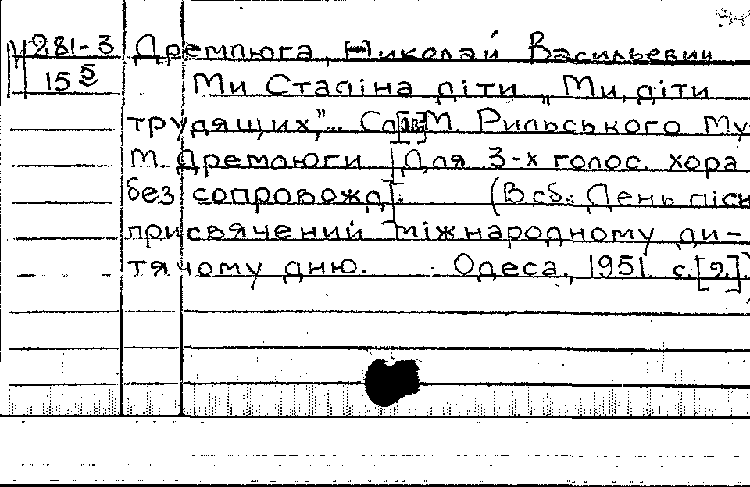 М 281-3 Дремлюга, Николай Васильевич
15 5 Ми Сталіна діти „Ми, діти
трудящих,"... Сл[ова] М. Рильського Му
М. Дремлюги [Для 3-х голос. хора
без сопровожд]. (В сб.: День пісн
присвячений міжнародному ди-
тячому дню. Одеса, 1951. с.[9].)